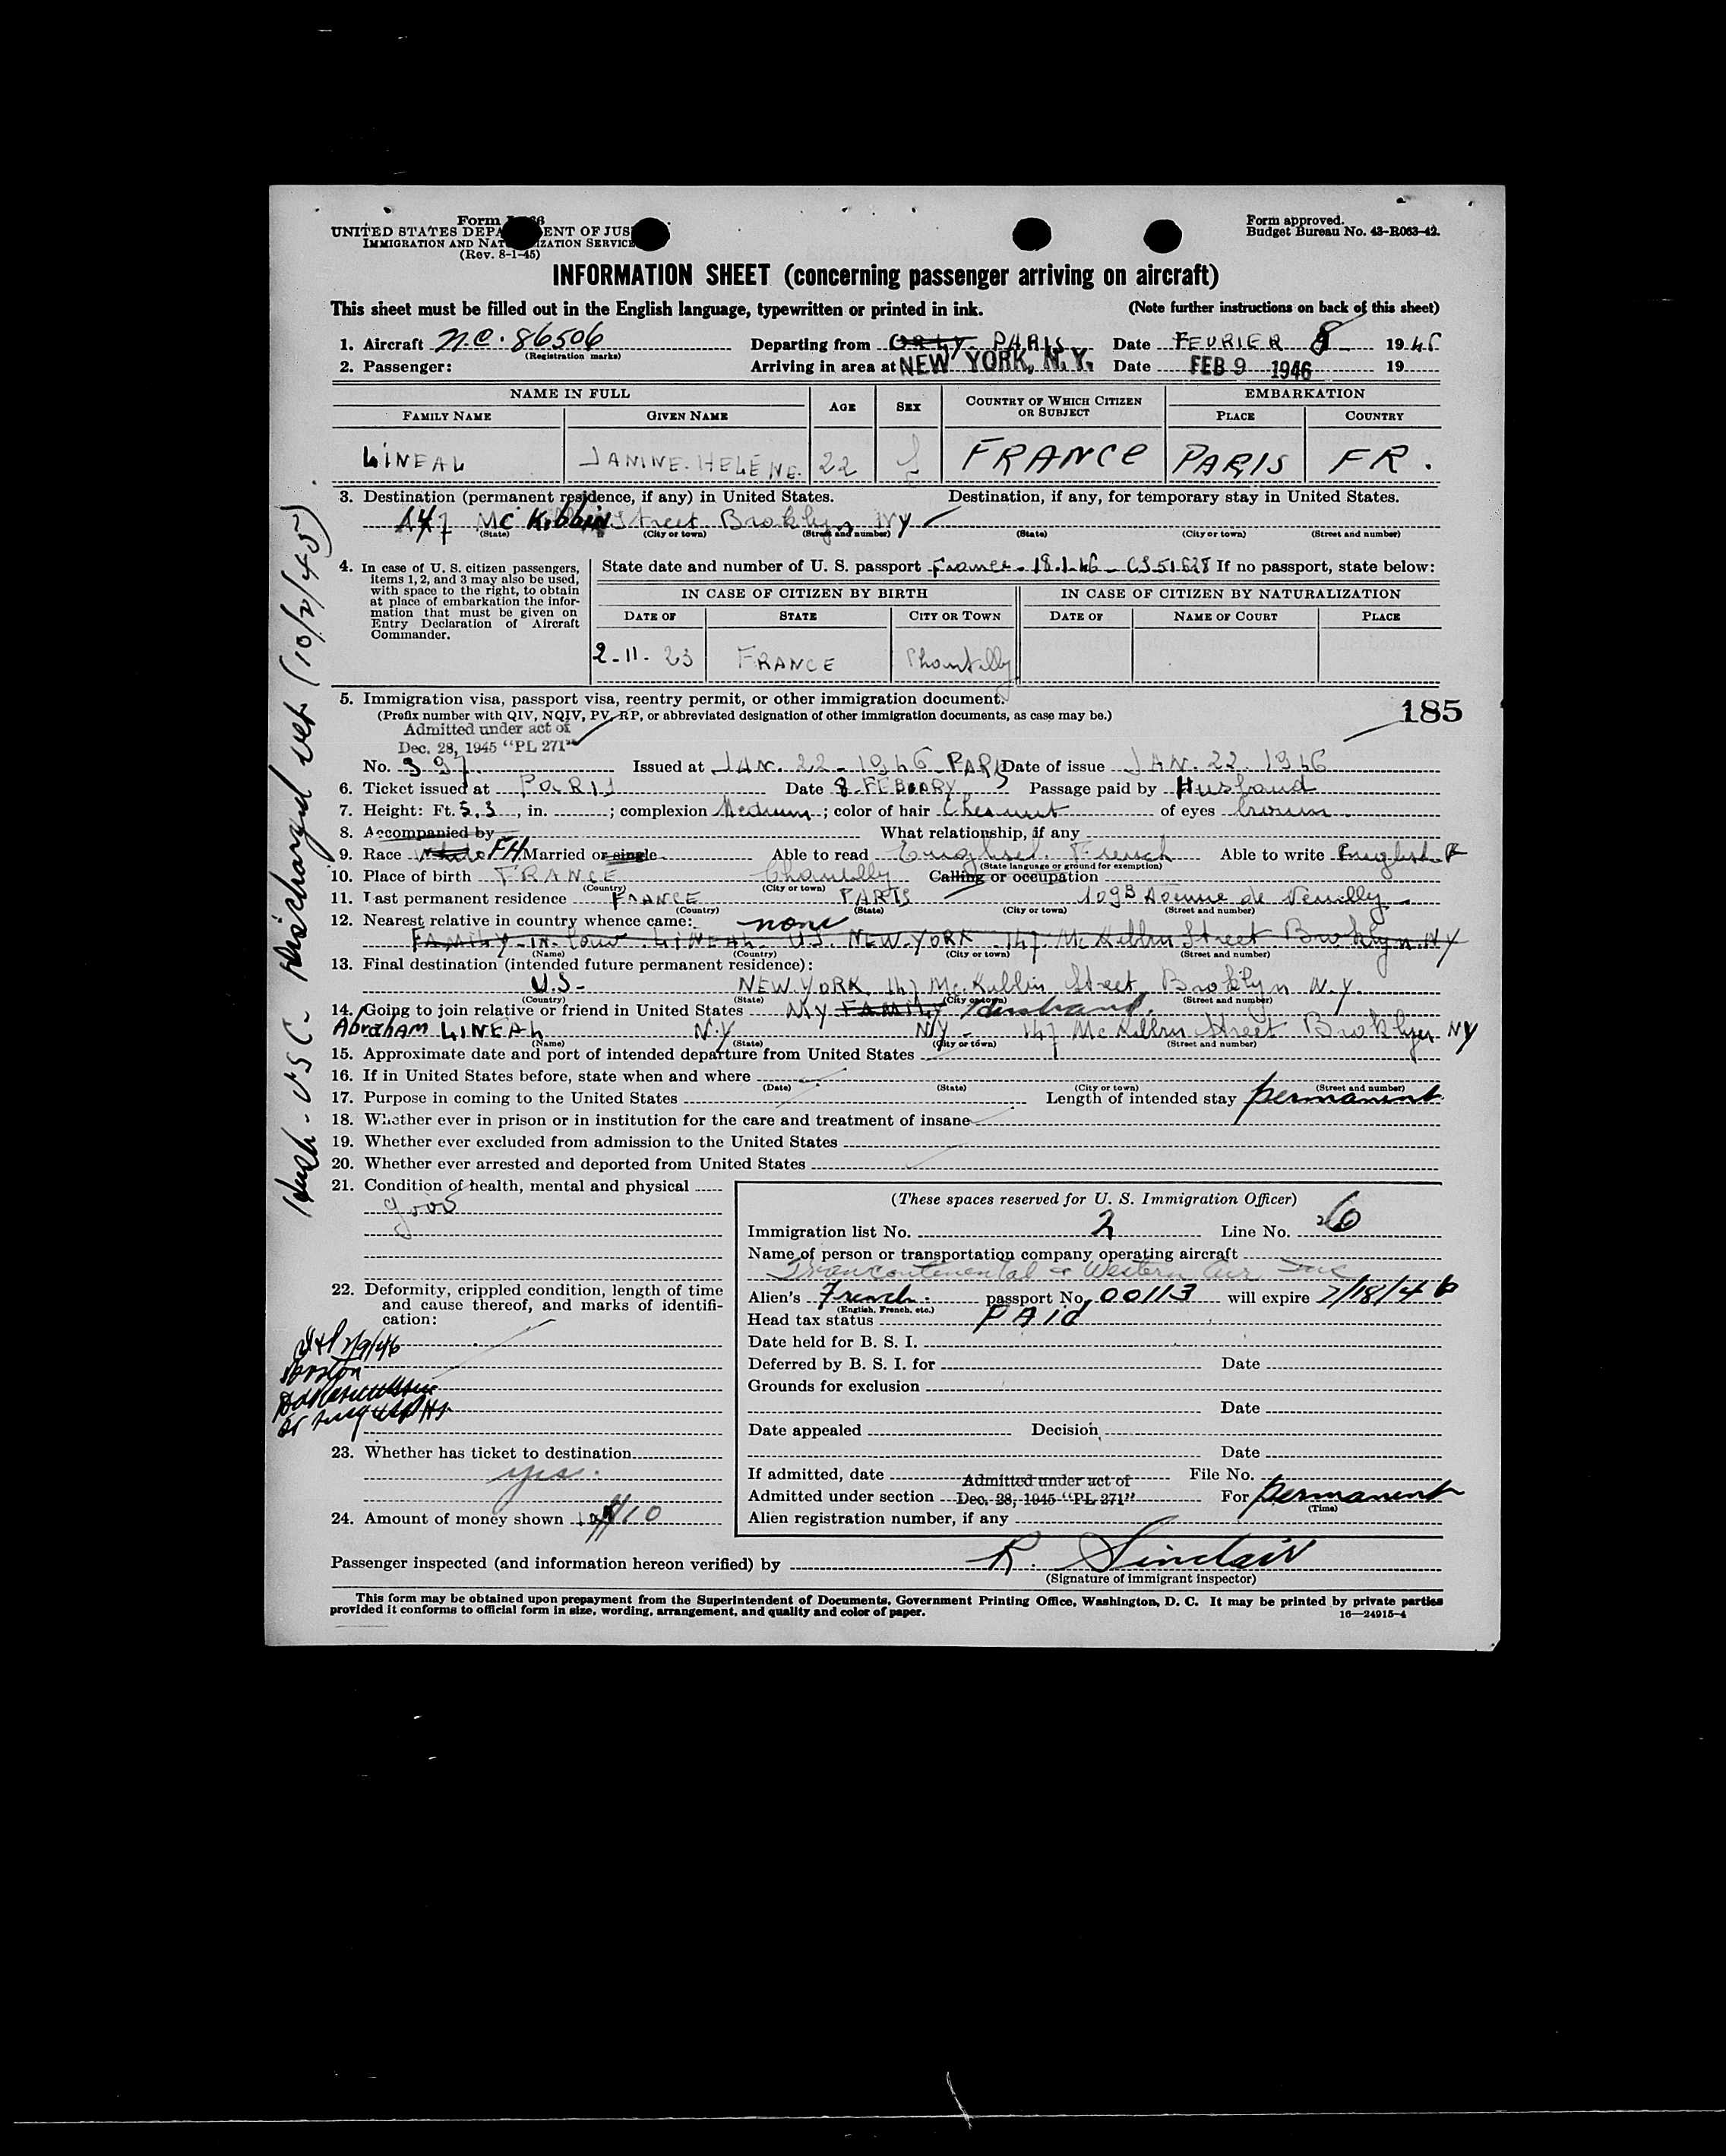 Form I-466
UNITED STATES DEPARTMENT OF JUSTICE
IMMIGRATION AND NATURALIZATION SERVICE
(Rev. 8-1-45)
Form approved.
Budget Bureau No. 43-R063-42.
INFORMATION SHEET (concerning passenger arriving on aircraft)
This sheet must be filled out in the English language, typewritten or printed in ink. (Note further instructions on back of this sheet)
1. Aircraft N.C. 86506 Departing from ORLY PARIS Date FEVRIER 8 1946
(Registration marks)
2. Passenger: Arriving in area at NEW YORK, N.Y. Date FEB 9 1946 19
NAME IN FULL AGE SEX COUNTRY OF WHICH CITIZEN OR SUBJECT EMBARKATION
FAMILY NAME GIVEN NAME PLACE COUNTRY
LINEAL JANINE.HELENE. 22 f FRANCE PARIS FR.
3. Destination (permanent residence, if any) in United States. Destination, if any, for temporary stay in United States.
147 Mc Kibbin Street Brooklyn NY
(State) (City or town) (Street and number) (State) (City or town) (Street and number)
4. In case of U. S. citizen passengers, items 1, 2, and 3 may also be used, with space to the right, to obtain at place of embarkation the information that must be given on Entry Declaration of Aircraft Commander.
State date and number of U. S. passport France - 18.1.46 - If no passport, state below:
IN CASE OF CITIZEN BY BIRTH IN CASE OF CITIZEN BY NATURALIZATION
DATE OF STATE CITY OR TOWN DATE OF NAME OF COURT PLACE
2-11-23 FRANCE Chantilly
5. Immigration visa, passport visa, reentry permit, or other immigration document.
185
(Prefix number with QIV, NQIV, PV, RP, or abbreviated designation of other immigration documents, as case may be.)
Admitted under act of
Dec. 28, 1945 "PL 271"
No. 397 Issued at JAN. 22 - 1946 - PARIS Date of issue JAN. 22. 1946
6. Ticket issued at PARIS Date 8 FEBUARY Passage paid by Husband
7. Height: Ft. 5.3, in. ; complexion Medium ; color of hair Chesnut of eyes brown
8. Accompanied by What relationship, if any
9. Race White FH Married or single Able to read English. French Able to write English F
(State language or ground for exemption)
10. Place of birth FRANCE Chantilly Calling or occupation
(Country) (City or town)
11. Last permanent residence FRANCE PARIS 109B Avenue de Neuilly
(Country) (State) (City or town) (Street and number)
12. Nearest relative in country whence came: none
FAMILY-IN-law LINEAL U.S. NEW-YORK 147 Mc Kibbin Street Brooklyn NY
(Name) (Country) (City or town) (Street and number)
13. Final destination (intended future permanent residence):
U.S - NEW.YORK. 147 Mc.Kibbin Street Brooklyn N.Y.
(Country) (State) (City or town) (Street and number)
14. Going to join relative or friend in United States My FAMILY Husband.
Abraham LINEAL N.Y NY - 147 Mc Kibbin Street Brooklyn NY
(Name) (State) (City or town) (Street and number)
15. Approximate date and port of intended departure from United States
16. If in United States before, state when and where
(Date) (State) (City or town) (Street and number)
17. Purpose in coming to the United States Length of intended stay permanent
18. Whether ever in prison or in institution for the care and treatment of insane
19. Whether ever excluded from admission to the United States
20. Whether ever arrested and deported from United States
21. Condition of health, mental and physical
good
22. Deformity, crippled condition, length of time and cause thereof, and marks of identification:
2/9/46
23. Whether has ticket to destination
yes.
24. Amount of money shown $10
(These spaces reserved for U. S. Immigration Officer)
Immigration list No. 2 Line No. 6
Name of person or transportation company operating aircraft
Transcontinental & Western Air Inc
Alien's French. passport No. 00113 will expire 7/18/46
(English, French, etc.)
Head tax status PAid
Date held for B. S. I.
Deferred by B. S. I. for Date
Grounds for exclusion
Date
Date appealed Decision
Date
If admitted, date Admitted under act of File No.
Admitted under section Dec. 28, 1945 "PL 271" For permanent
(Time)
Alien registration number, if any
Passenger inspected (and information hereon verified) by R. Sinclair
(Signature of immigrant inspector)
This form may be obtained upon prepayment from the Superintendent of Documents, Government Printing Office, Washington, D. C. It may be printed by private parties
provided it conforms to official form in size, wording, arrangement, and quality and color of paper. 16—24915-4
Husb - USC - Discharged vet. (10/2/45)